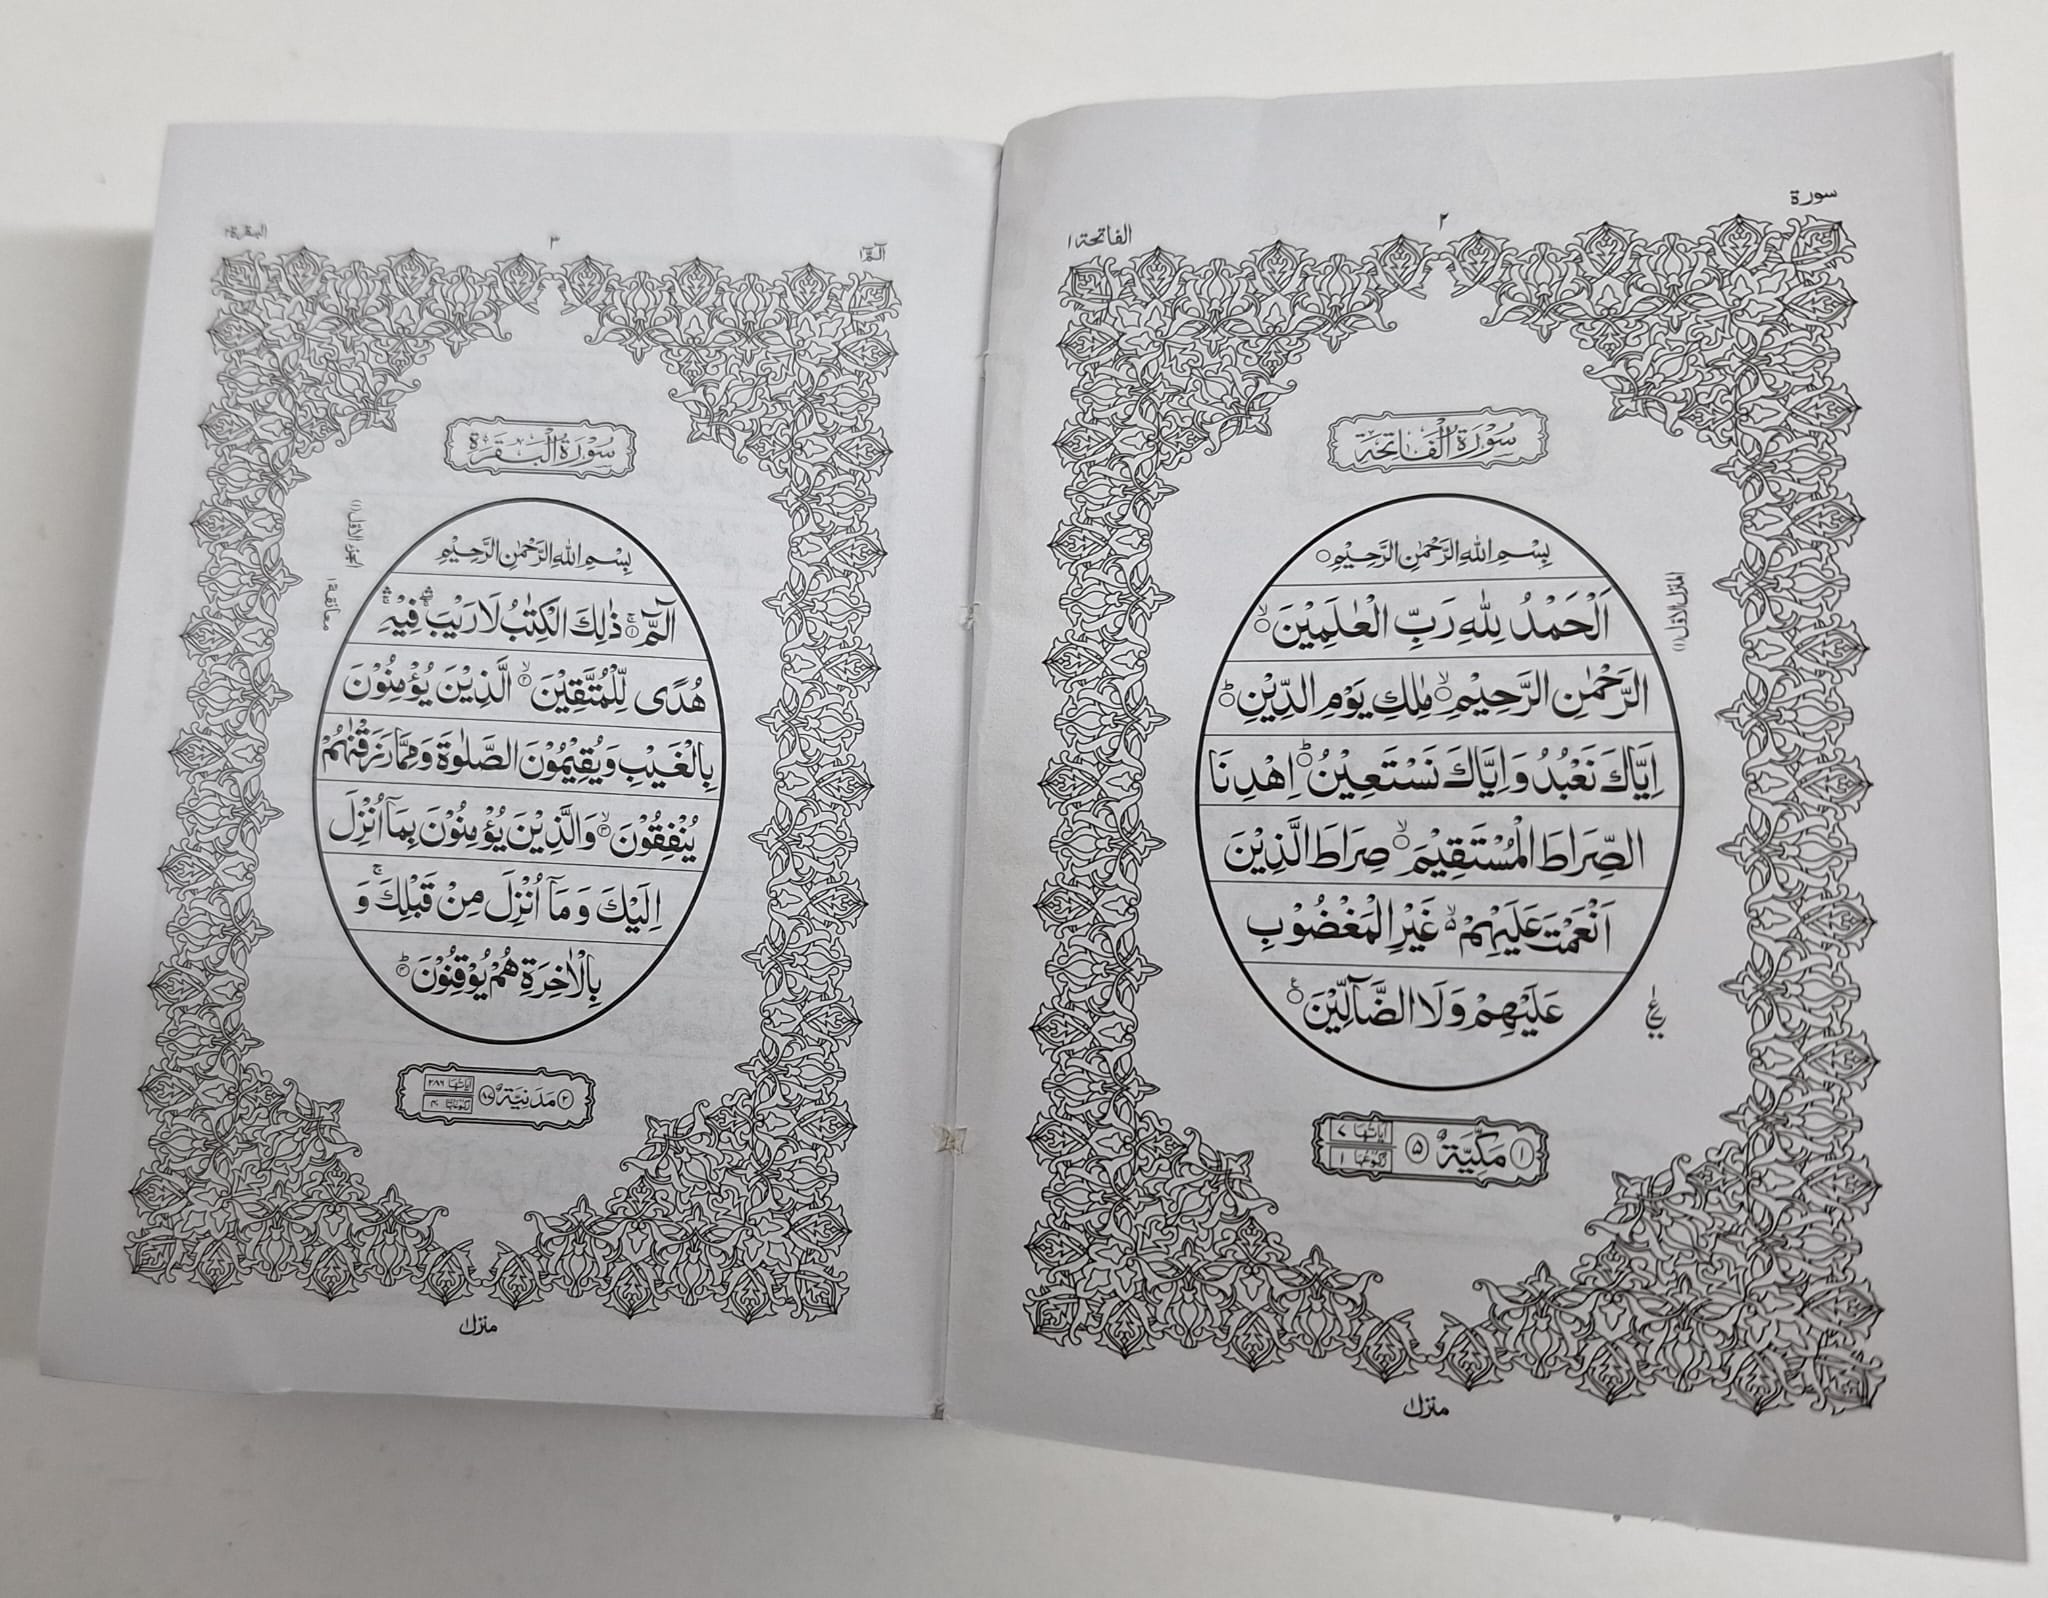 سورة
٢
الفاتحة ١
سُوْرَةُ الْفَاتِحَة
بِسْمِ اللّٰهِ الرَّحْمٰنِ الرَّحِيْمِ ○
اَلْحَمْدُ لِلّٰهِ رَبِّ الْعٰلَمِيْنَ ۙ
الرَّحْمٰنِ الرَّحِيْمِ ۙ مٰلِكِ يَوْمِ الدِّيْنِ ؕ
اِيَّاكَ نَعْبُدُ وَاِيَّاكَ نَسْتَعِيْنُ ؕ اِهْدِنَا
الصِّرَاطَ الْمُسْتَقِيْمَ ۙ صِرَاطَ الَّذِيْنَ
اَنْعَمْتَ عَلَيْهِمْ ۙ غَيْرِ الْمَغْضُوْبِ
عَلَيْهِمْ وَلَا الضَّآلِّيْنَ ع
المنزل الاول (١)
ع
١ مَكِّيَّةٌ ٥
اٰيَاتُهَا ٧
رُكُوْعُهَا ١
منزل ١
الٓمّٓ ١
٣
البقرة ٢
سُوْرَةُ الْبَقَرَة
بِسْمِ اللّٰهِ الرَّحْمٰنِ الرَّحِيْمِ
الٓمّٓ ۚ ١ ذٰلِكَ الْكِتٰبُ لَا رَيْبَ ۛ فِيْهِ ۛ
هُدًى لِّلْمُتَّقِيْنَ ۙ ٢ الَّذِيْنَ يُؤْمِنُوْنَ
بِالْغَيْبِ وَيُقِيْمُوْنَ الصَّلٰوةَ وَمِمَّا رَزَقْنٰهُمْ
يُنْفِقُوْنَ ۙ ٣ وَالَّذِيْنَ يُؤْمِنُوْنَ بِمَآ اُنْزِلَ
اِلَيْكَ وَمَآ اُنْزِلَ مِنْ قَبْلِكَ ۚ وَ
بِالْاٰخِرَةِ هُمْ يُوْقِنُوْنَ ؕ ٤
الجزء الاول (١)
معانقة ١
٢ مَدَنِيَّةٌ ٨٧
اٰيَاتُهَا ٢٨٦
رُكُوْعَاتُهَا ٤٠
منزل ١